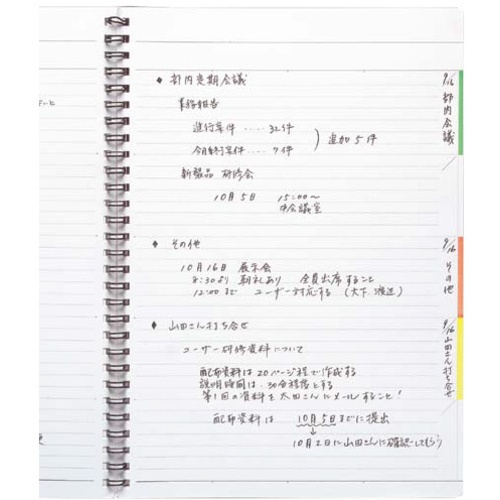 ◆ 部内定期会議
業務報告
進行案件 ‥‥ 32件
今月終了案件 ‥‥ 7件
) 追加 5件
新製品 研修会
10月5日 15:00~
中会議室
◆ その他
10月16日 展示会
8:30より 朝礼あり 全員出席すること
12:00まで ユーザー対応する (大下、渡辺)
◆ 山田さん打ち合せ
ユーザー研修資料について
配布資料は20ページ程で作成する
説明時間は、30分程度とする
第1回の資料を太田さんにメールすること!
配布資料は 10月5日までに提出
↓
10月2日に山田さんに確認してもらう
9/16 部内会議
9/16 その他
9/16 山田さん打ち合せ